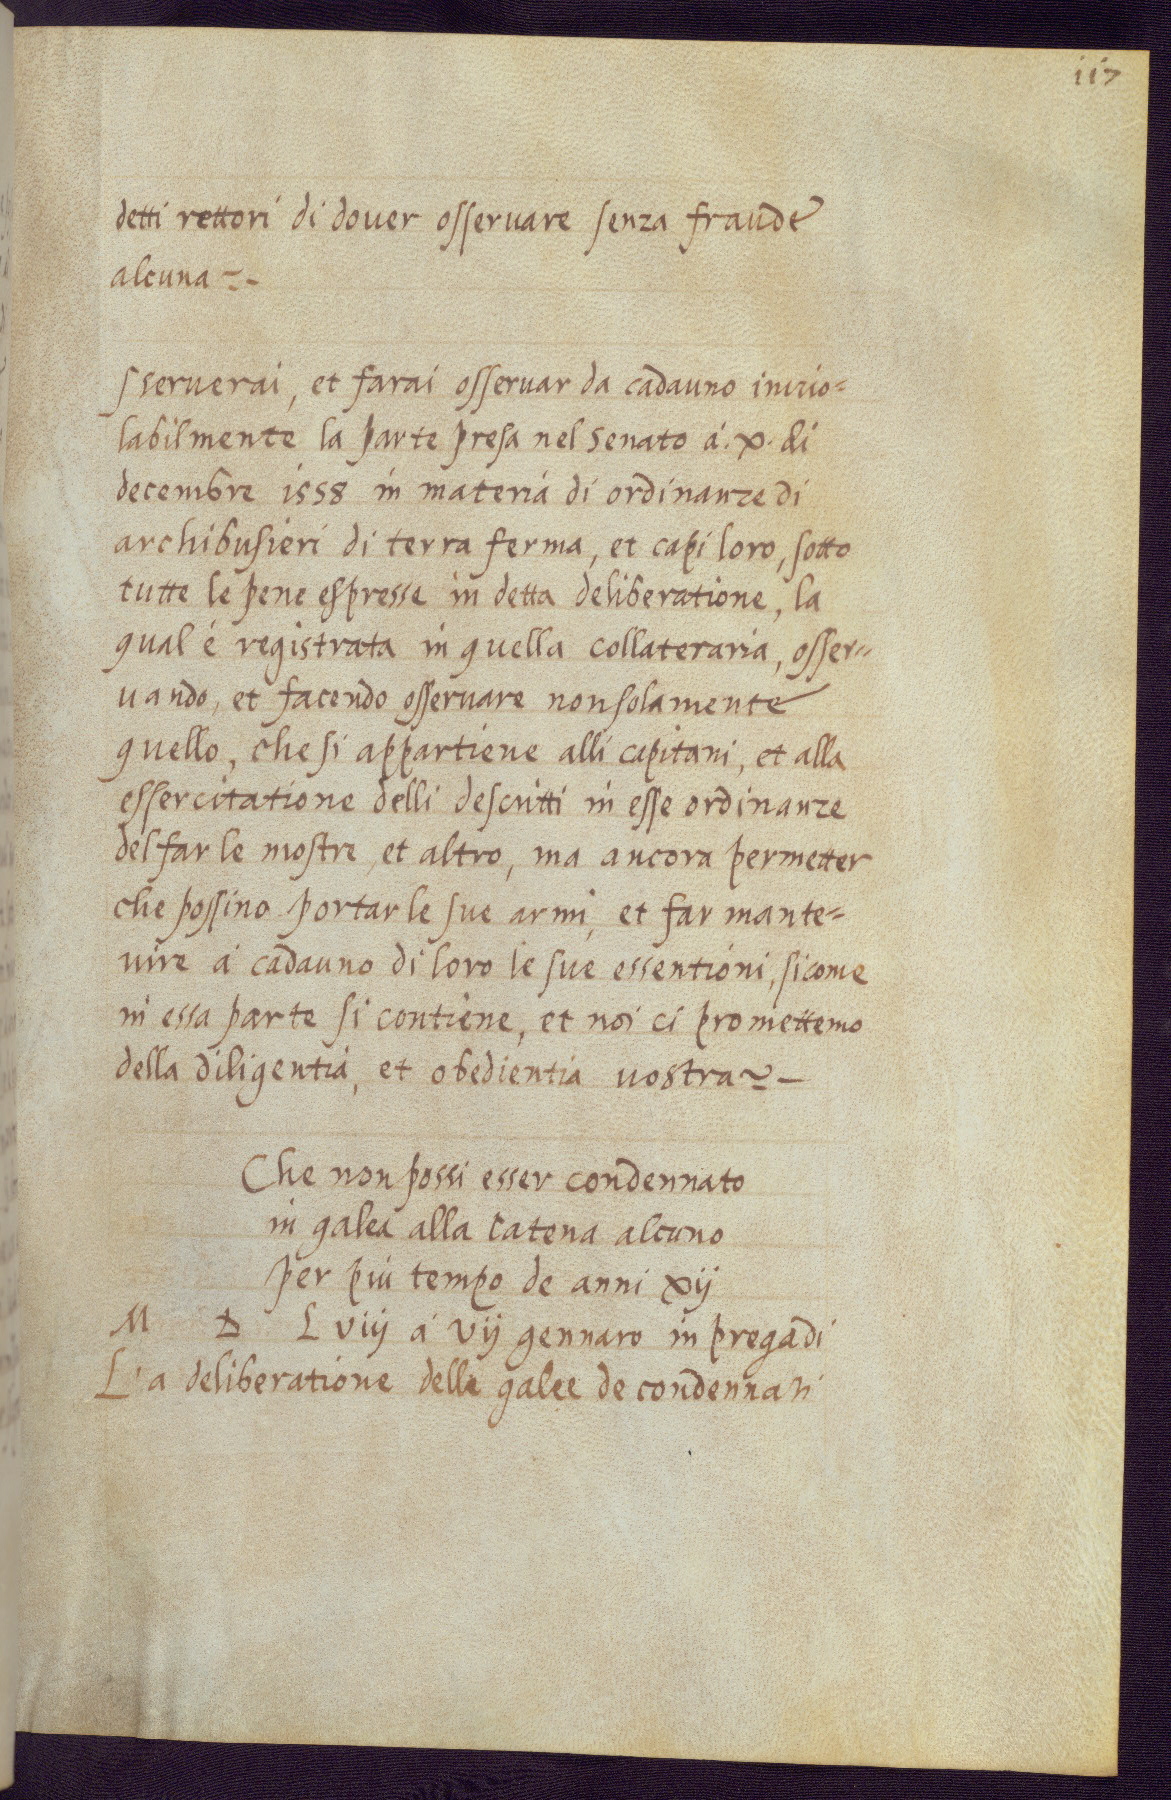 117
detti rettori di douer osseruare senza fraude
alcuna
sseruerai, et farai osseruar da cadauno inuio=
labilmente la parte presa nel senato á .x. di
decembre 1558 in materia di ordinanze di
archibusieri di terra ferma, et capi loro, sotto
tutte le pene espresse in detta deliberatione, la
qual é registrata in quella collateraria, osser=
uando, et facendo osseruare non solamente
quello, che si appartiene alli capitani, et alla
essercitatione delli descritti in esse ordinanze
del far le mostre, et altro, ma ancora permetter
che possino portar le sue armi, et far mante=
nire á cadauno di loro le sue essentioni, sicome
in essa parte si contiene, et noi ci promettemo
della diligentia, et obedientia uostra
Che non possi esser condennato
in galea alla catena alcuno
per piú tempo de anni xij
M D Lviij á vij gennaro in pregadi
L'a deliberatione delle galee de condennati